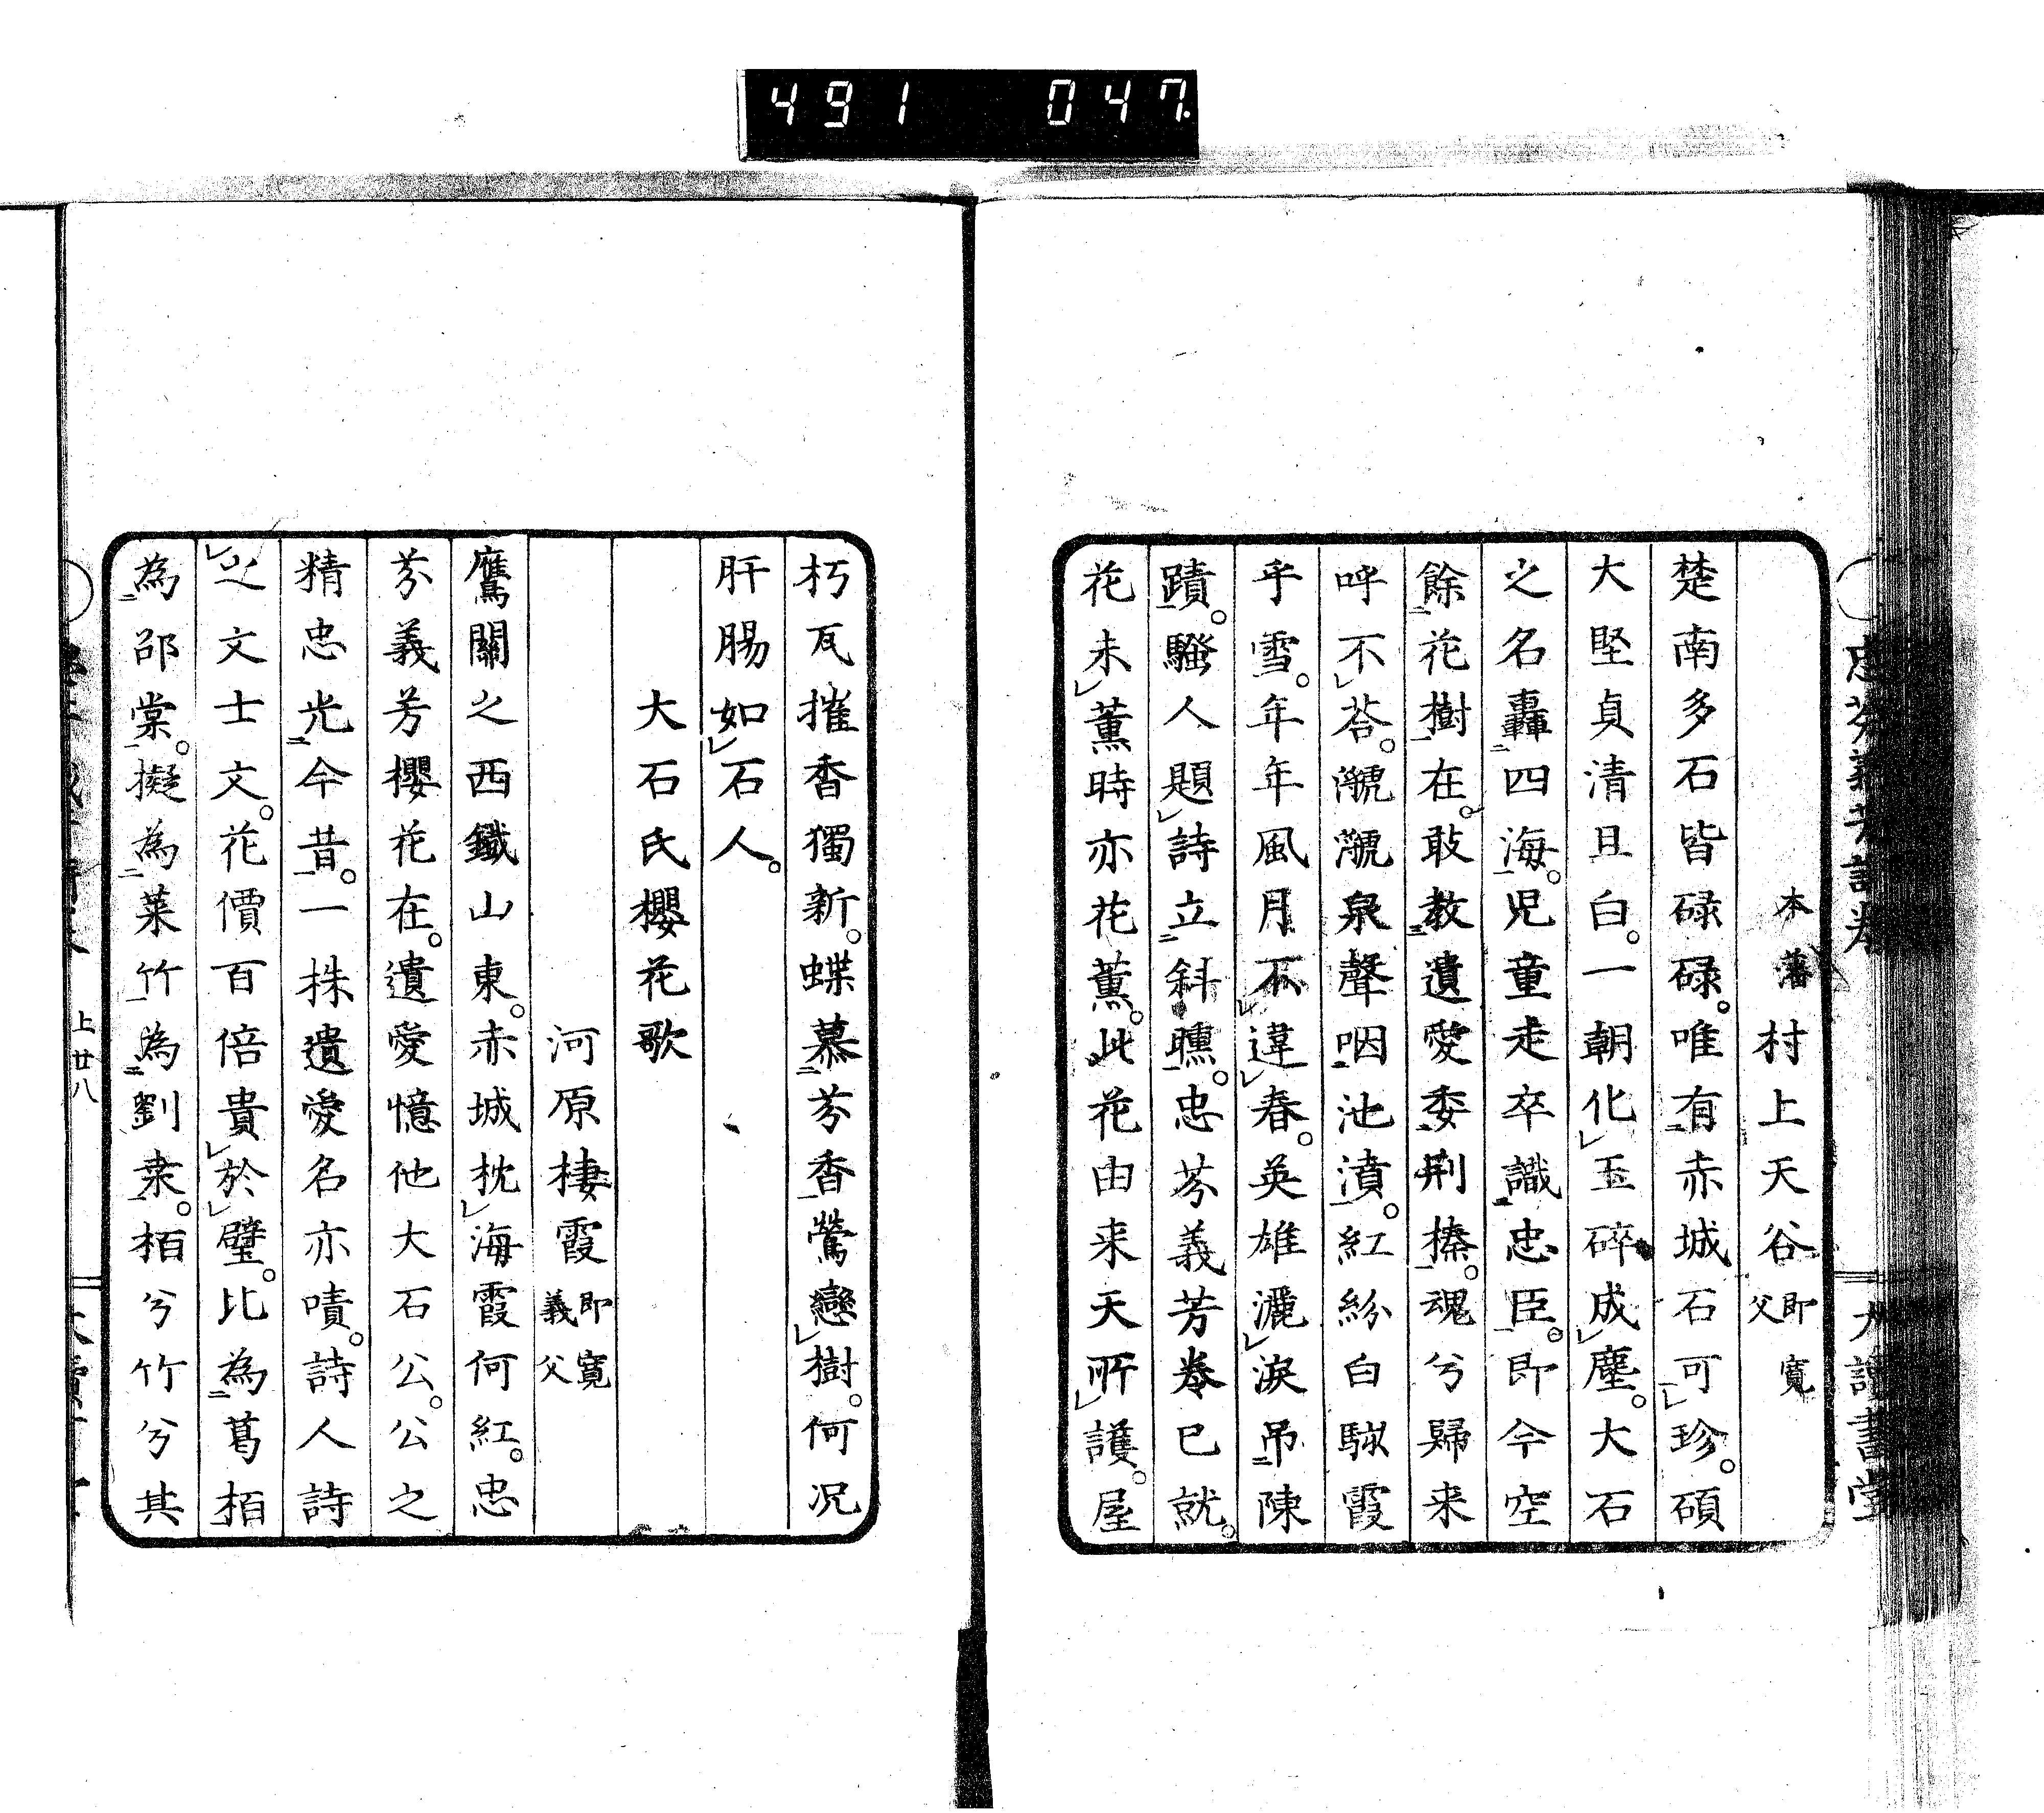 491 047
本藩村上天谷即寬父
楚南多石皆碌碌。唯有赤城石可珍。碩
大堅貞清且白。一朝化玉碎成塵。大石
之名轟四海。児童走卒識忠臣。即今空
餘花樹在。敢教遺愛委荆榛。魂兮歸来
呼不荅。㶁㶁泉聲咽池濆。紅紛白駁霞
乎雪。年年年風月不違春。英雄灑淚吊陳
蹟。騷人題詩立斜曛。忠芬義芳巻已就。
花未薰時亦花薫。此花由来天所護。屋
朽瓦摧香獨新。蝶慕芬香鶯戀樹。何况
肝腸如石人。
大石氏櫻花歌
河原棲霞即寬義父
鷹關之西鐵山東。赤城枕海霞何紅。忠
芬義芳櫻花在。遺愛憶他大石公。公之
精忠光今昔。一株遺愛名亦嘖。詩人詩
之文士文。花價百倍貴於璧。比為葛栢
為邵棠。擬為菜竹為劉桒。栢兮竹兮其
上廿八